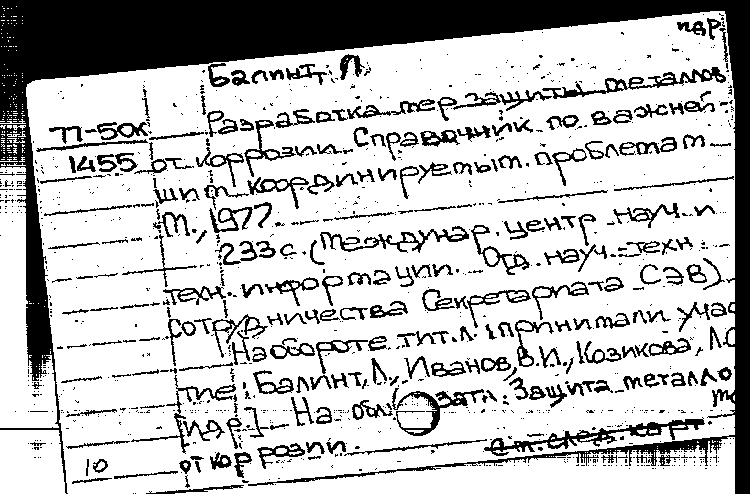 пдр.
Балинт, Л.
77-50к Разработка мер защиты металлов
1455 от коррозии. Справочник по важней-
шим координируемым проблемам
М., 1977.
233 с. (Междунар. центр науч. и
техн. информации. Отд. науч.-техн.
сотрудничества Секретариата СЭВ)
На обороте тит. л.: принимали учас
тие: Балинт, Л., Иванов, В.И., Козикова, Л.С
[идр.] На обл загл.: Защита металло
10 от коррозии.
См. след. карт.